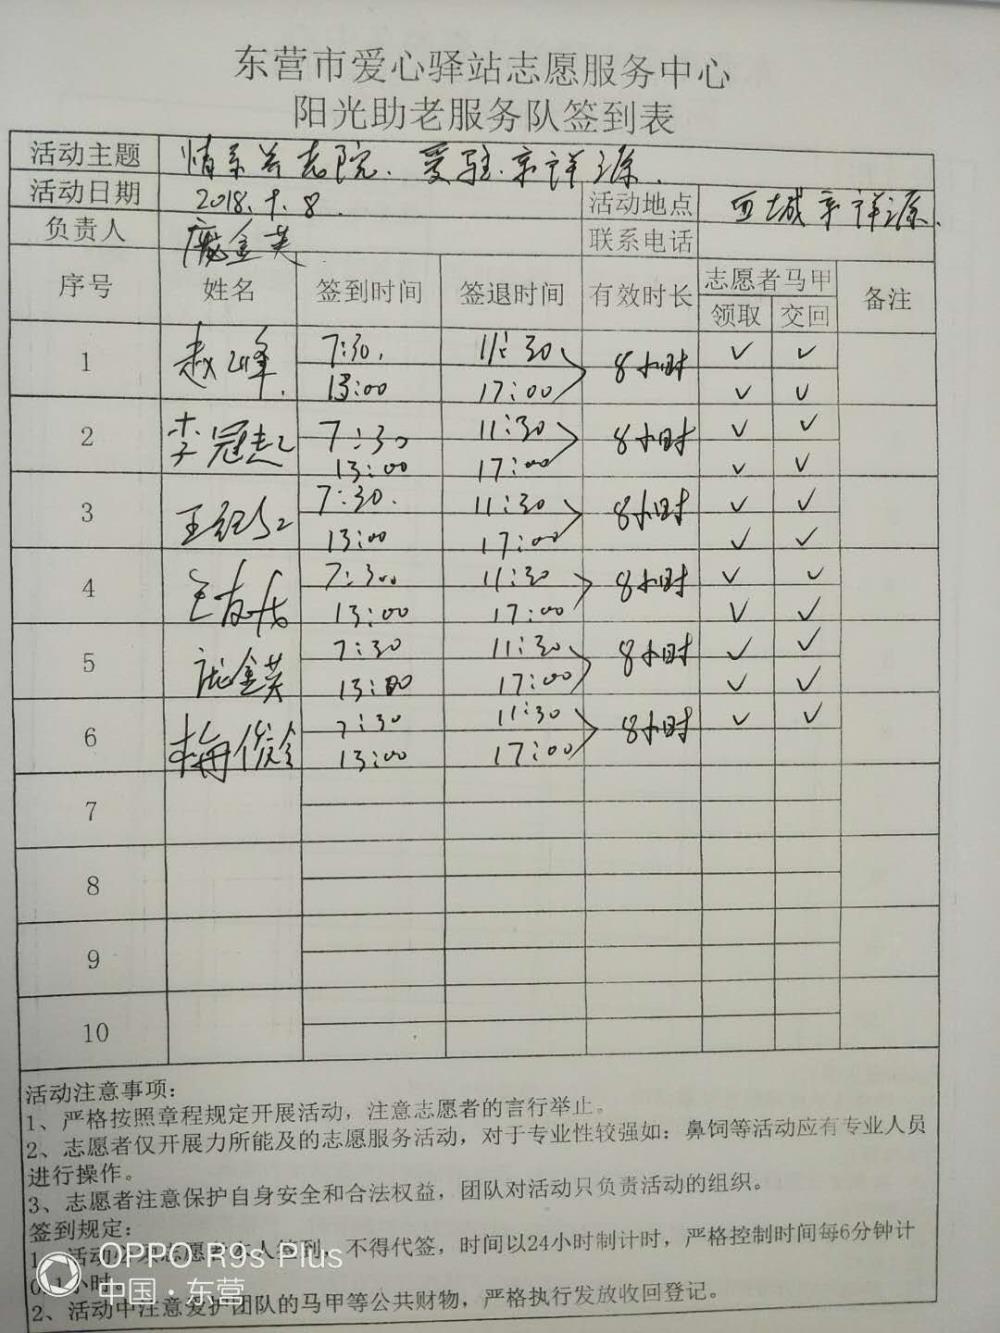 东营市爱心驿站志愿服务中心
阳光助老服务队签到表
活动主题 情系养老院.爱驻.亲祥源.
活动日期 2018.9.8. 活动地点 西城亲祥源.
负责人 庞金英 联系电话
序号 姓名 签到时间 签退时间 有效时长 志愿者马甲 备注
领取 交回
1 赵峰. 7:30. 11:30 8小时 ✓ ✓
13:00 17:00 ✓ ✓
2 李冠 7:30 11:30 8小时 ✓ ✓
13:00 17:00 ✓ ✓
3 王红 7:30. 11:30 8小时 ✓ ✓
13:00 17:00 ✓ ✓
4 王友 7:300 11:30 8小时 ✓ ✓
13:00 17:00 ✓ ✓
5 庞金英 7:30 11:30 8小时 ✓ ✓
13:00 17:00 ✓ ✓
6 梅俊玲 7:30 11:30 8小时 ✓ ✓
13:00 17:00
7
8
9
10
活动注意事项:
1、严格按照章程规定开展活动，注意志愿者的言行举止。
2、志愿者仅开展力所能及的志愿服务活动，对于专业性较强如：鼻饲等活动应有专业人员
进行操作。
3、志愿者注意保护自身安全和合法权益，团队对活动只负责活动的组织。
签到规定:
1、活动 志愿者 人签到，不得代签，时间以24小时制计时，严格控制时间每6分钟计
0.1小时。
2、活动中注意爱护团队的马甲等公共财物，严格执行发放收回登记。
OPPO R9s Plus
中国·东营